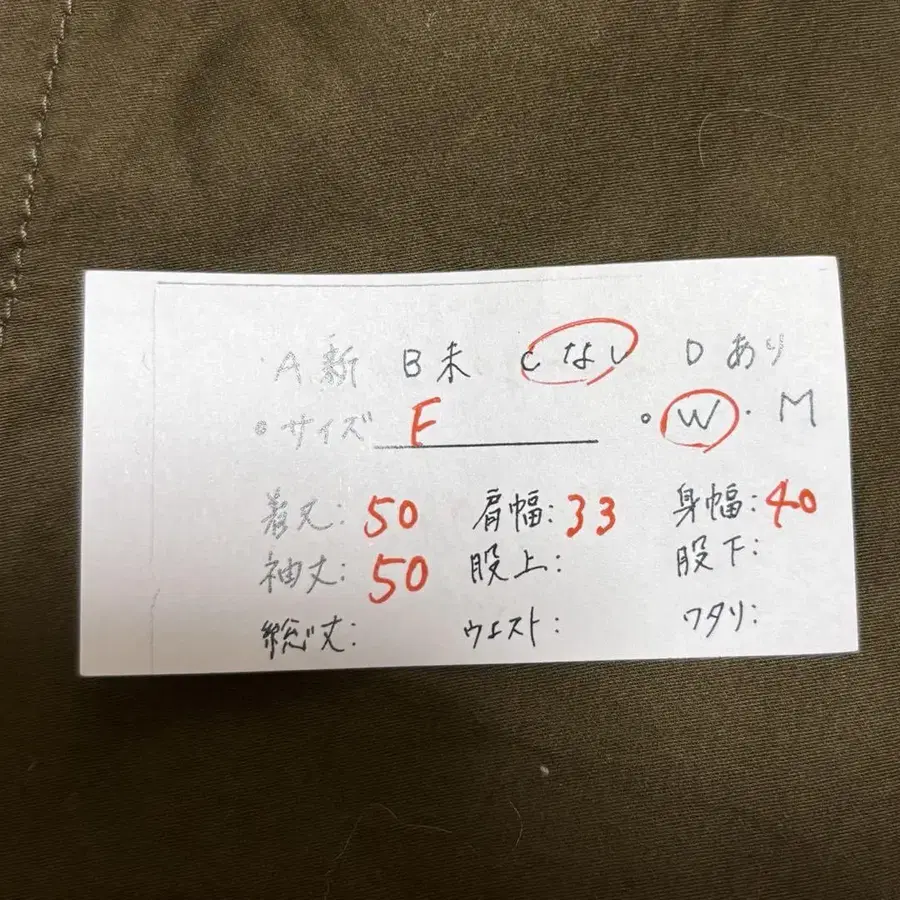 A 新 B 未 C なし D あり
• サイズ F • W · M
着丈: 50 肩幅: 33 身幅: 40
袖丈: 50 股上: 股下:
総丈: ウエスト: ワタリ: